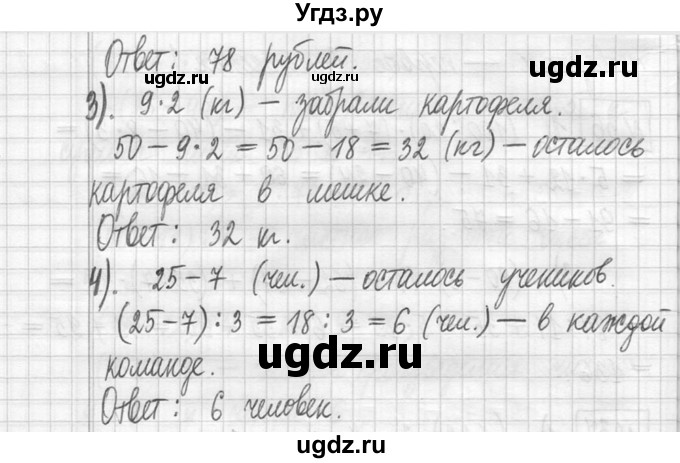 Угдз.ру
Ответ: 78 рублей.
3). 9·2 (кг) – забрали картофеля.
50 – 9·2 = 50 – 18 = 32 (кг) – осталось
картофеля в мешке.
Ответ: 32 кг.
ugdz.ru
4). 25 – 7 (чел.) – осталось учеников.
(25–7) : 3 = 18 : 3 = 6 (чел.) – в каждой
ugdz.ru
команде.
Ответ: 6 человек.
ugdz.ru
ugdz.ru